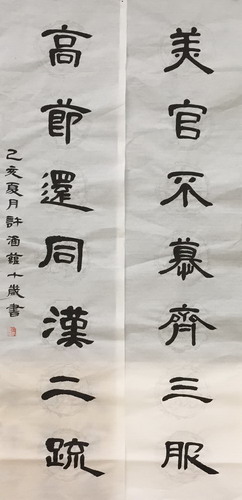 美官不慕齊三服
高節還同漢二疏
乙亥夏月許潘籬十歲書